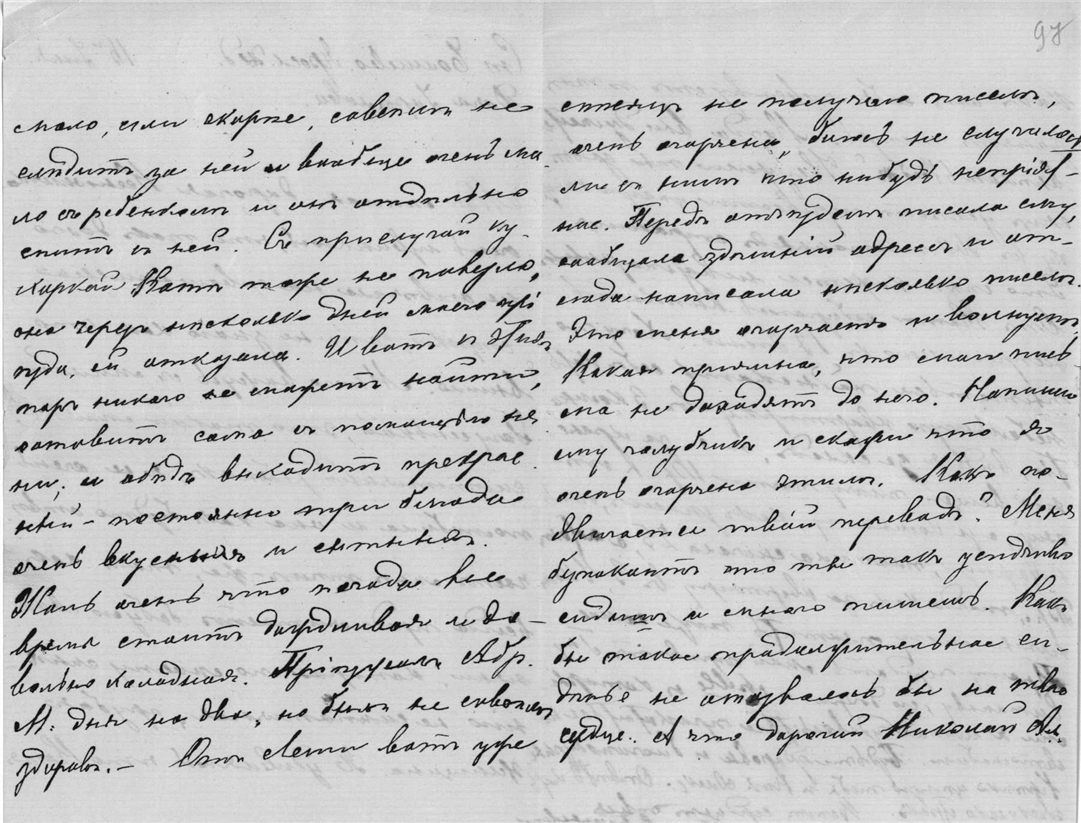 97
мало, или скорѣе, совсѣмъ не
слѣдитъ за ней и вообще очень ма-
ло съ ребенкомъ и онъ отдѣльно
спитъ съ ней. Съ прислугай ку-
харкой Катѣ тоже не повезло,
она черезъ нѣсколько дней моего прі
ѣзда, ей отказала. И вотъ съ
поръ никого не можетъ найти,
готовитъ сама съ помощью ня
ни, и обѣдъ выходитъ прекрас
ный – постоянно три блюда
очень вкусныхъ и сытныхъ.
Жаль очень что погода все
время стоитъ дождливая и до-
вольно холодная. Пріѣзжалъ Абр.
М. дня на два, но былъ не совсѣмъ
здоровъ. – Отъ Лели вотъ уже
мѣсяцъ не получаю писемъ,
очень огорчена, боюсь не случилось
ли съ нимъ что нибудь непріят-
ное. Передъ отъѣздомъ писала ему,
сообщала здѣшній адресъ и от-
сюда написала нѣсколько писемъ.
Это меня огорчаетъ и волнуетъ
Какая причина, что мои пись
ма не доходятъ до него. Напиши
ему голубчикъ и скажи что я
очень огорчена этимъ. Какъ по-
двигается твой переводъ? Меня
безпокоитъ что ты такъ усидчиво
сидишь и много пишешь. Какъ
бы такое продолжительное си-
дѣнье не отозвалось бы на твое
сердце. А что дорогой Николай Ал.